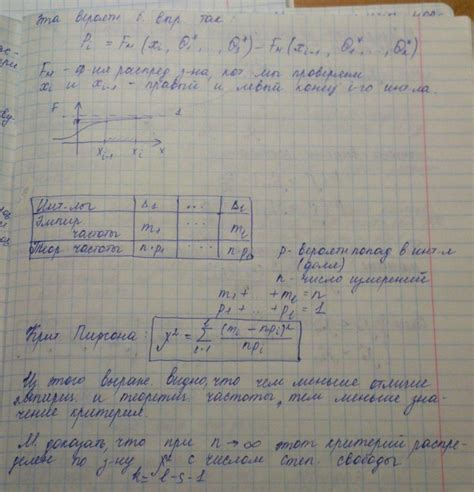 Эта вероятн б. выр. так:
Pᵢ = Fн (xᵢ, Θ₁*, .., Θₛ*) − Fн (xᵢ₋₁, Θ₁*, .., Θₛ*)
Fн - ф-ия распред з-на, кот мы проверяем
xᵢ и xᵢ₋₁ - правый и левый конец i-го инт-ла.
F
1
xᵢ₋₁ xᵢ x
Инт-лы Δ₁ ... Δₗ
Эмпир. частоты m₁ ... mₗ
Теор частоты n·p₁ ... n·pₗ
p - вероятн попад в инт-л
(доля)
n - число измерений
m₁ + .. + mₗ = n
p₁ + ... + pₗ = 1
Крит Пирсона: χ² = Σ (mᵢ − npᵢ)² / npᵢ
i=1
Из этого выраже. видно, что чем меньше отличие
эмпирич. и теоретич. частоты, тем меньше зна-
чение критерия.
М. доказать, что при n → ∞ этот критерий распре-
делен по з-ну χ² с числом степ. свободы
k = l - s - 1